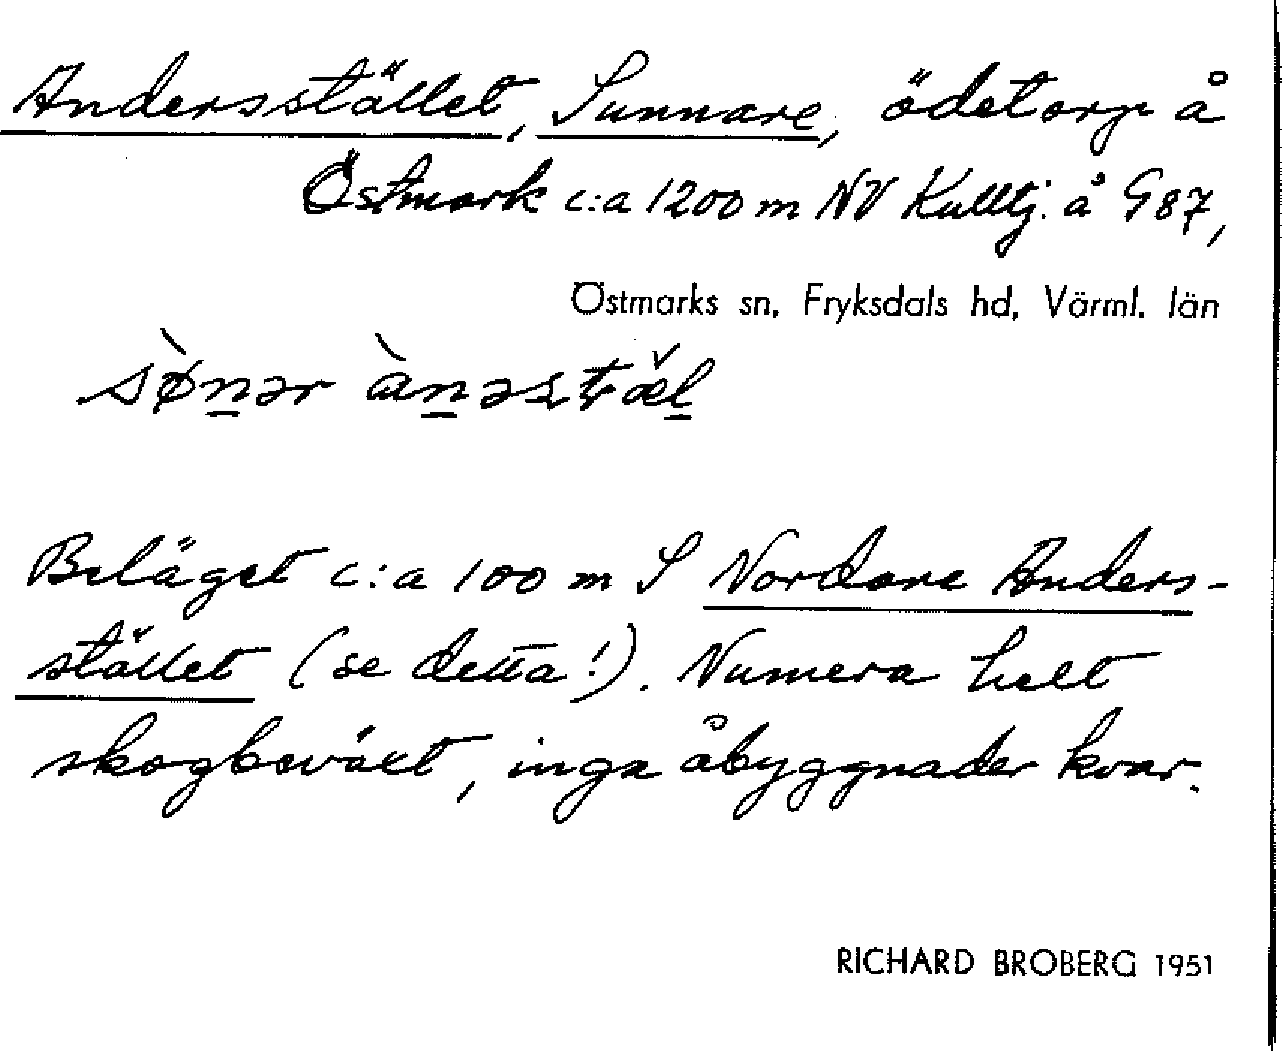 Andersstället, Sunnare, ödetorp å
Östmark c:a 1200 m NV Kulltj. å G 87,
Östmarks sn, Fryksdals hd, Värml. län
sø̀n̲ər àn̲əst̨æ̌l̲
Beläget c:a 100 m S Nordare Anders-
stället (se detta!). Numera helt
skogbeväxt, inga åbyggnader kvar.
RICHARD BROBERG 1951